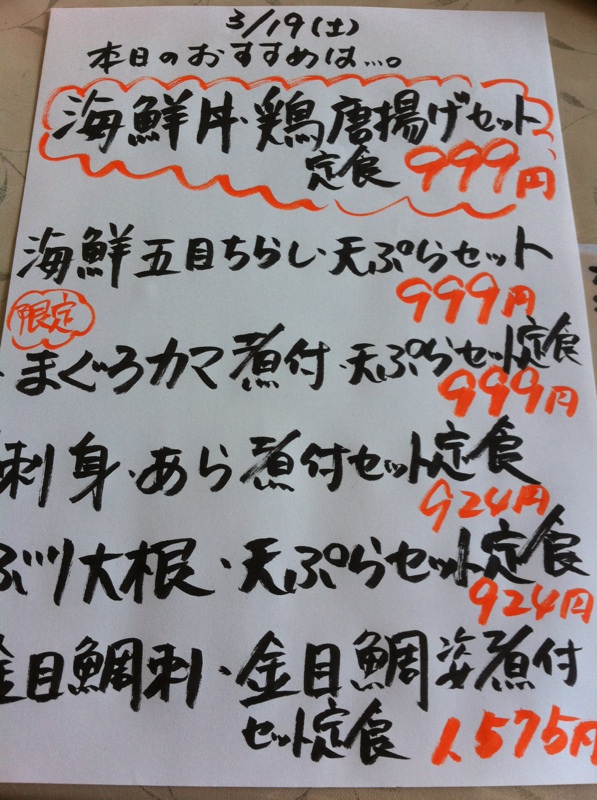 3/19(土)
本日のおすすめは…。
海鮮丼・鶏唐揚げセット
定食 999円
海鮮五目ちらし・天ぷらセット
999円
限定
・まぐろカマ煮付・天ぷらセット定食
999円
刺身・あら煮付セット定食
924円
ぶり大根・天ぷらセット定食
924円
金目鯛刺・金目鯛姿煮付
セット定食 1,575円